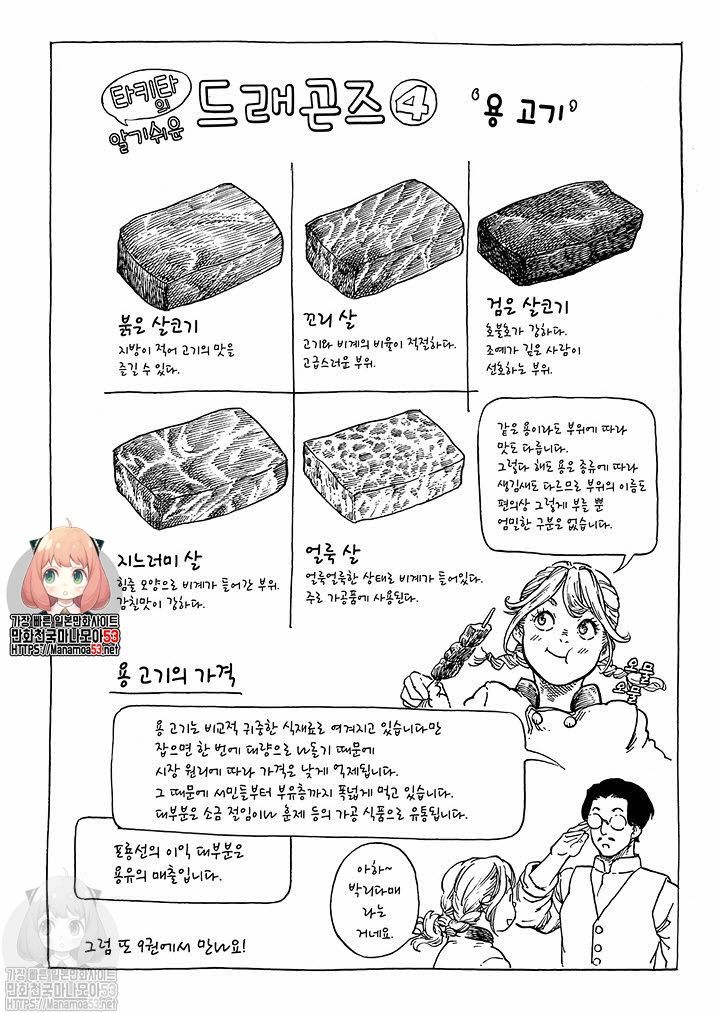 타키타의
알기쉬운
드래곤즈 4
'용 고기'
붉은 살코기
지방이 적어 고기의 맛을
즐길 수 있다.
꼬리 살
고기와 비계의 비율이 적절하다.
고급스러운 부위.
검은 살코기
호불호가 강하다.
조예가 깊은 사람이
선호하는 부위.
지느러미 살
힘줄 모양으로 비계가 들어간 부위.
감칠맛이 강하다.
얼룩 살
얼룩얼룩한 상태로 비계가 들어있다.
주로 가공품에 사용된다.
같은 용이라도 부위에 따라
맛도 다릅니다.
그렇다 해도 용은 종류에 따라
생김새도 다르므로 부위의 이름도
편의상 그렇게 부를 뿐
엄밀한 구분은 없습니다.
오물
오물
용 고기의 가격
용 고기는 비교적 귀중한 식재료로 여겨지고 있습니다만
잡으면 한 번에 대량으로 나돌기 때문에
시장 원리에 따라 가격은 낮게 억제됩니다.
그 때문에 서민들부터 부유층까지 폭넓게 먹고 있습니다.
대부분은 소금 절임이나 훈제 등의 가공 식품으로 유통됩니다.
포룡선의 이익 대부분은
용유의 매출입니다.
아하~
박리다매
라는
거네요.
그럼 또 9권에서 만나요!
가장 빠른 일본만화사이트
만화천국마나모아53
HTTPS://Manamoa53.net
가장 빠른 일본만화사이트
만화천국마나모아53
HTTPS://Manamoa53.net